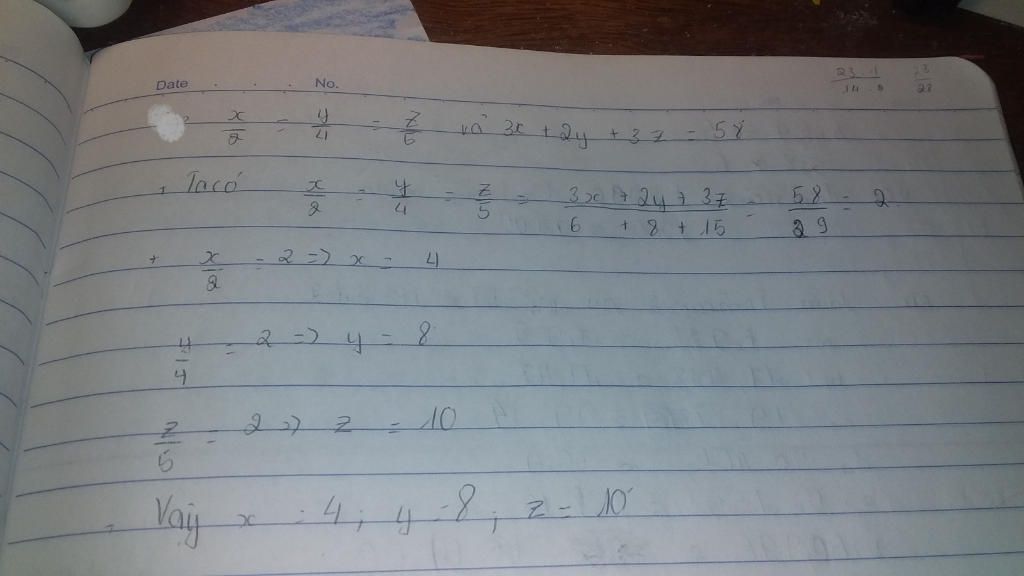 Date . . . . No.
23 . 1 / 14 . 8 23/23
x/2 = y/4 = z/5 và 3x + 2y + 3z = 58
+ Ta có x/2 = y/4 = z/5 = (3x + 2y + 3z)/(6 + 8 + 15) = 58/29 = 2
+ x/2 = 2 => x = 4
y/4 = 2 => y = 8
z/5 = 2 => z = 10
Vậy x = 4 ; y = 8 ; z = 10